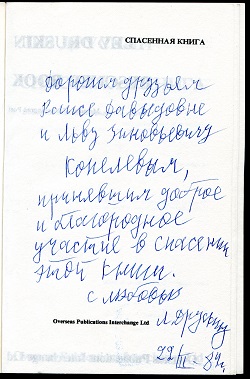 СПАСЕННАЯ КНИГА
Дорогим друзьям
Раисе Давыдовне
и Льву Зиновьевичу
Копелевым,
принявшим доброе
и благородное
участие в спасении
этой книги.
С любовью
Overseas Publications Interchange Ltd
Л. Друскин
22/III - 84 г.